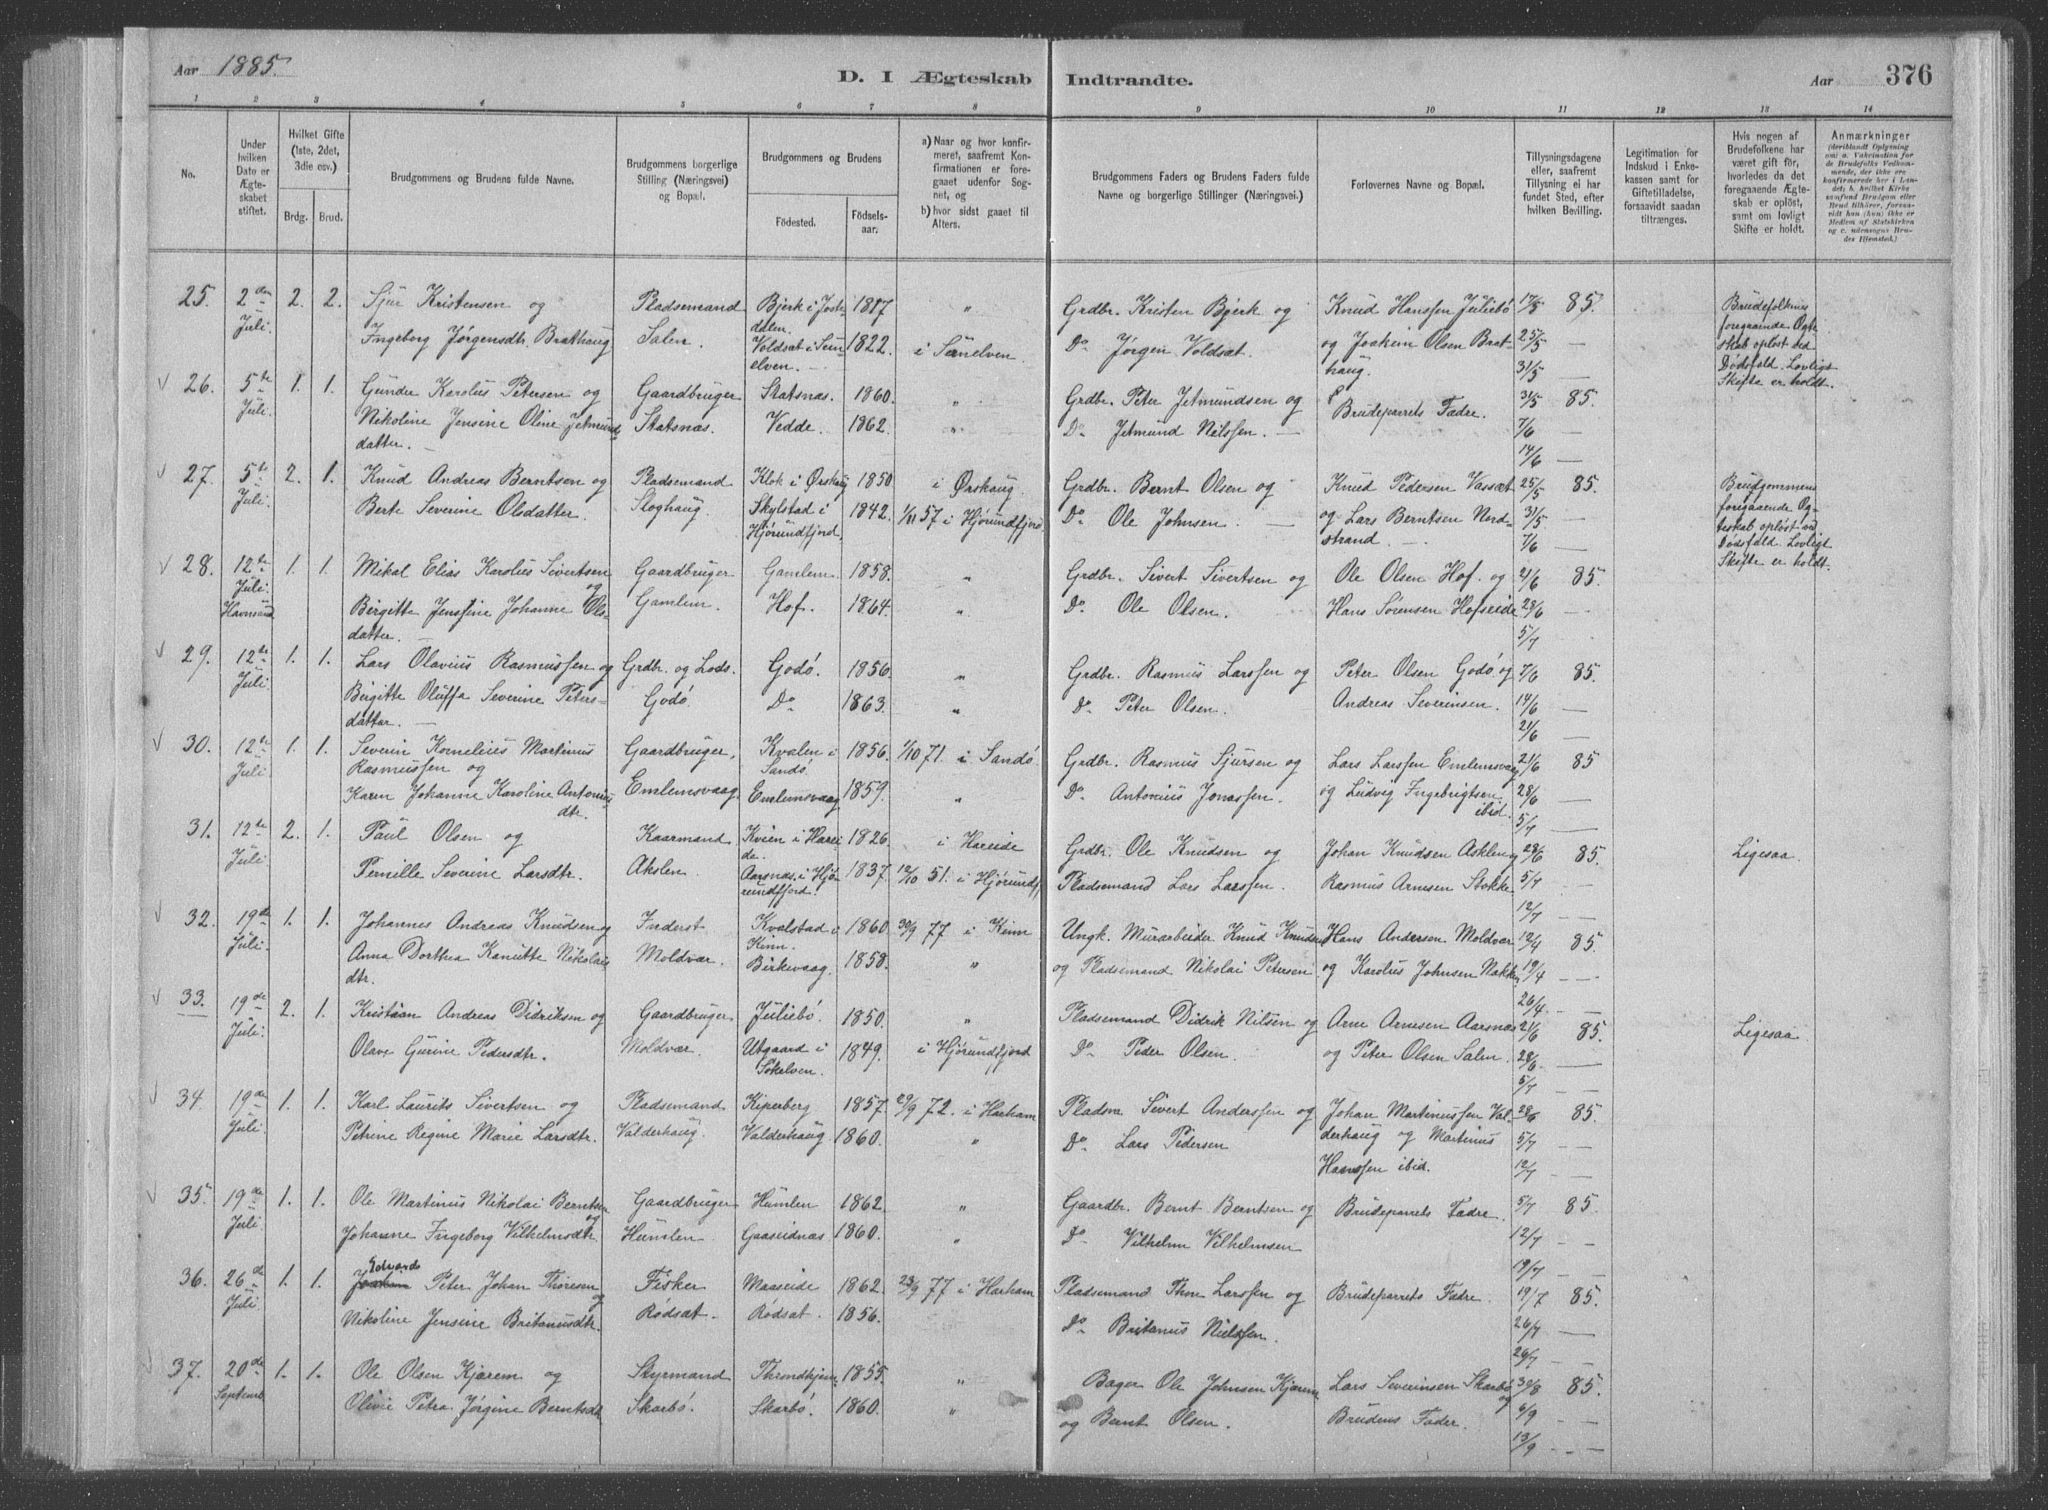 Aar 1885.
D. I Ægteskab Indtrandte.
Aar 376
1 2 3 4 5 6 7 8 9 10 11 12 13 14
No.
Under hvilken Dato er Ægteskabet stiftet.
Hvilket Gifte (1ste, 2det, 3die osv.)
Brdg. Brud.
Brudgommens og Brudens fulde Navne.
Brudgommens borgerlige Stilling (Næringsvei) og Bopæl.
Brudgommens og Brudens
Födested. Födselsaar.
a) Naar og hvor konfirmeret, saafremt Konfirmationen er foregaaet udenfor Sognet, og
b) hvor sidst gaaet til Alters.
Brudgommens Faders og Brudens Faders fulde Navne og borgerlige Stillinger (Næringsvei.)
Forlovernes Navne og Bopæl.
Tillysningsdagene eller, saafremt Tillysning ei har fundet Sted, efter hvilken Bevilling.
Legitimation for Indskud i Enkekassen samt for Giftetilladelse, forsaavidt saadan tiltrænges.
Hvis nogen af Brudefolkene har været gift för, hvorledes da det foregaaende Ægteskab er oplöst, samt om lovligt Skifte er holdt.
Anmærkninger
25. 2den Juli 2. 2. Sjur Kristensen og Pladsemand Bjerk i Jostedalen 1817 " Grdbr. Kristen Bjerk og Knud Hanssen Juliebö 17/5 85. Brudefolkenes
Ingeborg Jørgensdtr. Brathaug Salen. Voldsat i Sunelven. 1822. i Sunelven. Do Jørgen Voldsat. og Joakim Olsen Brathaug. 25/5 31/5 foregaaende Ægteskab oplöst ved Dødsfald. Lovligt Skifte er holdt.
26. 5te Juli 1. 1. Gunder Karolus Petersen og Gaardbruger Statsnæs. 1860. " Grdbr. Peter Jetmundsen og Brudeparrets Fædre. 31/5 85.
Nikoline Jensine Oline Jetmunddatter. Statsnæs. Vedde. 1862. " Do Jetmund Nilssen. 7/6 14/6
27. 5te Juli 2. 1. Knud Andreas Berntsen og Pladsemand Klok i Ørskaug 1850 i Ørskaug. Grdbr. Bernt Olsen og Knud Pedersen Vassæt 25/5 85. Brudgommens
Berte Severine Olsdatter. Sloghaug. Skylstad i Hjørundfjord. 1842. 1/11 57 i Hjørundfjord Do Ole Johnsen. og Lars Berntsen Nordstrand. 31/5 7/6 foregaaende Ægteskab opløst ved Dødsfald. Lovligt Skifte er holdt.
28. 12te Juli Havnsund 1. 1. Mikal Elias Karolus Sivertsen og Gaardbruger Gamlem. 1858. " Grdbr. Sivert Sivertsen og Ole Olsen Hof. og 21/6 85.
Birgitte Jenssine Johanne Olsdatter. Gamlem. Hof. 1864. " Do Ole Olsen. Hans Sørensen Hofseide 28/6 5/7
29. 12te Juli 1. 1. Lars Olavius Rasmussen og Grdbr. og Lods. Godö. 1856. " Grdbr. Rasmus Larssen og Peter Olsen Godö og 7/6 85.
Birgitte Oluffa Severine Petersdatter. Godö. Do 1863. " Do Peter Olsen. Andreas Severinsen. 14/6 21/6
30. 12te Juli 1. 1. Severin Kornelius Martinus Rasmussen og Gaardbruger, Kvalen i Sandö. 1856. 1/10 71. i Sandö. Grdbr. Rasmus Sjursen og Lars Larssen Emlemsvaag 21/6 85
Karen Johanne Karoline Antoniusdtr. Emlemsvaag. Emlemsvaag 1859. " Do Antonius Jonassen. og Ludvig Ingebrigtsen ibid. 28/6 5/7
31. 12te Juli 2. 1. Paul Olsen og Kaarmand Kvien i Hareide. 1826. i Hareide Grdbr. Ole Knudsen og Johan Knudsen Akslen og 28/6 85. Ligesaa.
Pernille Severine Larsdtr. Akslen. Aarsnæs i Hjørundfjord. 1837. 12/10 51. i Hjørundfj. Pladsemand Lars Larssen. Rasmus Arnesen Stokke 5/7 12/7
32. 19de Juli 1. 1. Johannes Andreas Knudsen og Inderst Kvalstad i Kinn. 1860 30/9 77 i Kinn Ungk. Murarbeider Knud Knudsen Hans Andersen Moldvær 12/4 85.
Anna Dorthea Kanutte Nikolaidtr. Moldvær. Birkevaag. 1858. " og Pladsemand Nikolai Petersen og Karolus Johnsen Nakken 19/4 26/4
33. 19de Juli 2. 1. Kristian Andreas Didriksen og Gaardbruger Juliebö. 1850. " Pladsemand Didrik Nilsen og Arne Arnesen Aarsnæs 21/6 85. Ligesaa
Olave Gurine Pedersdtr. Moldvær. Utgaard i Søkelven. 1849. i Hjørundfjord Do Peder Olsen. og Peter Olsen Salen. 28/6 5/7
34. 19de Juli. 1. 1. Karl Laurits Sivertsen og Pladsemand Kiperberg 1857. 29/9 72. i Harham Pladsm. Sivert Anderssen og Johan Martinussen Valderhaug og Martinus 28/6 85.
Petrine Regine Marie Larsdtr. Valderhaug. Valderhaug 1860. " Do Lars Pedersen Hanssen ibid. 5/7 12/7
35. 19de Juli 1. 1. Ole Martinus Nikolai Berntsen og Gaardbruger Humlen 1862. " Gaardbr. Bernt Berntsen og Brudeparrets Fædre. 5/7 85.
Johanne Ingeborg Vilhelmsdtr. Humlen. Gaaseidnæs 1860. " Do Vilhelm Vilhelmsen 12/7 19/7
36. 26de Juli 1. 1. Edvard Peter Johan Thoresen og Fisker Maaseide 1862. 23/9 77 i Harham Pladsemand Thore Larssen og Brudeparrets Fædre. 19/7 85.
Nikoline Jensine Britanusdtr. Rødsat. Rødsat. 1856. Do Britanus Nielssen. 26/7 26/7
37. 20de Septemb. 1. 1. Ole Olsen Kjærem og Styrmand Throndhjem. 1855. " Bager Ole Johnsen Kjærem Lars Severinsen Skarbö og 30/8 85.
Olivie Petra Jørgine Berntsdtr. Skarbö. Skarbö. 1860. " og Bernt Olsen. Brudens Fader. 6/9 13/9